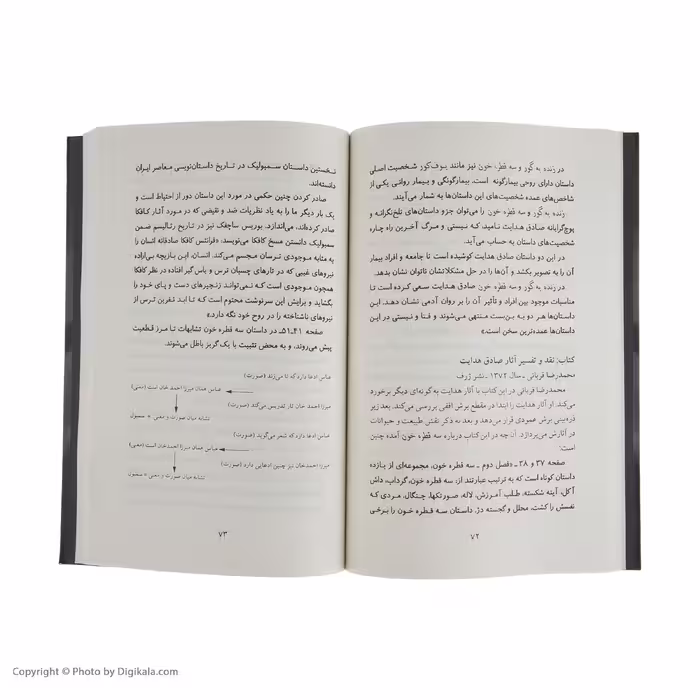 در زنده به گور و سه قطره خون نیز مانند بوف‌کور شخصیت اصلی
داستان دارای روحی بیمارگونه است. بیمارگونگی و بیمار روانی یکی از
شاخص‌های عمده شخصیت‌های این داستان‌ها به شمار می‌آیند.
زنده به گور و سه قطره خون را می‌توان جزو داستان‌های تلخ‌نگرانه و
پوچ‌گرایانه صادق هدایت نامید، که نیستی و مرگ آخرین راه چاره
شخصیت‌های داستان به حساب می‌آید.
در این دو داستان صادق هدایت کوشیده است تا جامعه و افراد بیمار
آن را به تصویر بکشد و آن‌ها را در حل مشکلاتشان ناتوان نشان بدهد.
در زنده به گور و سه قطره خون صادق هدایت سعی کرده است تا
مناسبات موجود بین افراد و تأثیر آن را بر روان آدمی نشان دهد. این
داستان‌ها هر دو به بن‌بست منتهی می‌شوند و فنا و نیستی در این
داستان‌ها عمده‌ترین سخن است»
کتاب: نقد و تفسیر آثار صادق هدایت
محمدرضا قربانی ـ سال ۱۳۷۲ ـ نشر ژرف
محمدرضا قربانی در این کتاب با آثار هدایت به گونه‌ای دیگر برخورد
می‌کند. او آثار هدایت را ابتدا در مقطع برش افقی بررسی می‌کند. بعد زیر
ذره‌بینی برش عمودی قرار می‌دهد و بعد به ذکر نقش طبیعت و حیوانات
در آثارش می‌پردازد. آن چه در این کتاب درباره سه قطره خون آمده چنین
است:
صفحه ۳۷ و ۳۸ ـ «فصل دوم ـ سه قطره خون، مجموعه‌ای از یازده
داستان کوتاه است که به ترتیب عبارتند از، سه قطره خون، گرداب، داش
آکل، آینه شکسته، طلب آمرزش، لاله، صورتکها، چنگال، مردی که
نفسش را کشت، محلل و گجسته دژ. داستان سه قطره خون را برخی
۷۲
نخستین داستان سمبولیک در تاریخ داستان‌نویسی معاصر ایران
دانسته‌اند.
صادر کردن چنین حکمی در مورد این داستان دور از احتیاط است و
یک بار دیگر ما را به یاد نظریات ضد و نقیضی که در مورد آثار کافکا
صادر کرده‌اند، می‌اندازد. بوریس ساچکف نیز در تاریخ رئالیسم ضمن
سمبولیک دانستن مسخ کافکا می‌نویسد: «فرانتس کافکا صادقانه انسان را
به مثابه موجودی ترسان مجسم می‌کند. انسان، این بازیچه بی‌اراده
نیروهای غیبی که در تارهای چسبان ترس و یأس گیر افتاده در نظر کافکا
همچون موجودی است که نمی‌تواند زنجیرهای دست و پای خود را
بگشاید و برایش این سرنوشت محتوم است که تا ابد نفرین ترس از
نیروهای ناشناخته را در روح خود نگه دارد.»
صفحه ۵۱،۴۱ـ در داستان سه قطره خون تشابهات تا مرز قطعیت
پیش می‌روند، و به محض تثبیت با یک گریز باطل می‌شوند.
عباس ادعا دارد که تار می‌زند (صورت)
عباس همان میرزا احمد خان است (معنی)
میرزا احمد خان تار تقدیس می‌کند (صورت)
تشابه میان صورت و معنی = سمبول
عباس ادعا دارد که شعر می‌گوید (صورت)
عباس همان میرزا احمدخان است (معنی)
میرزا احمدخان نیز چنین ادعایی دارد (صورت)
تشابه میان صورت و معنی = سمبول
۷۳
Copyright © Photo by Digikala.com